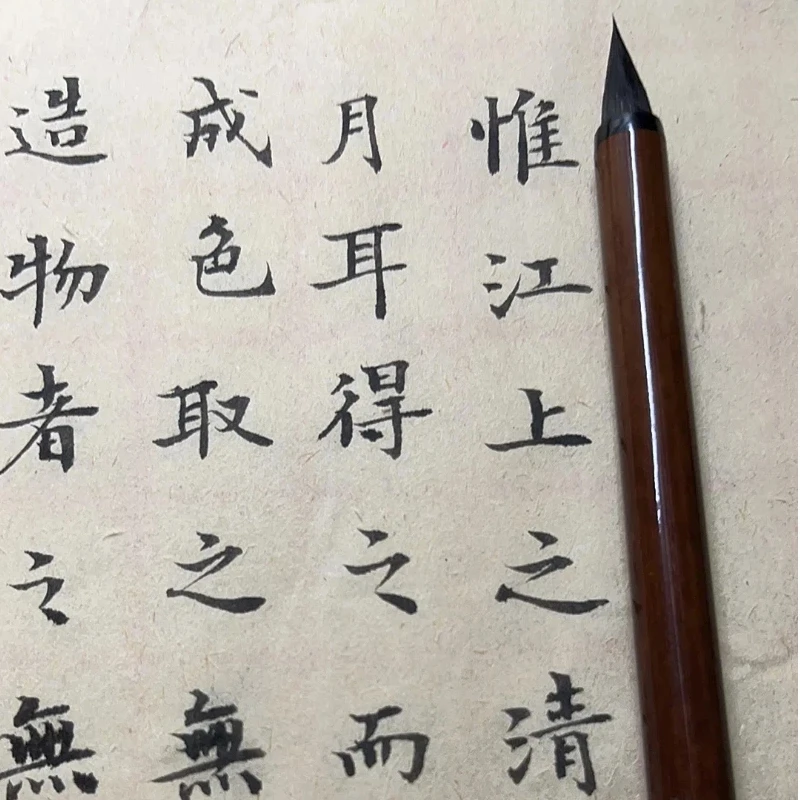 惟江上之清
月耳得之而
成色取之無
造物者之無